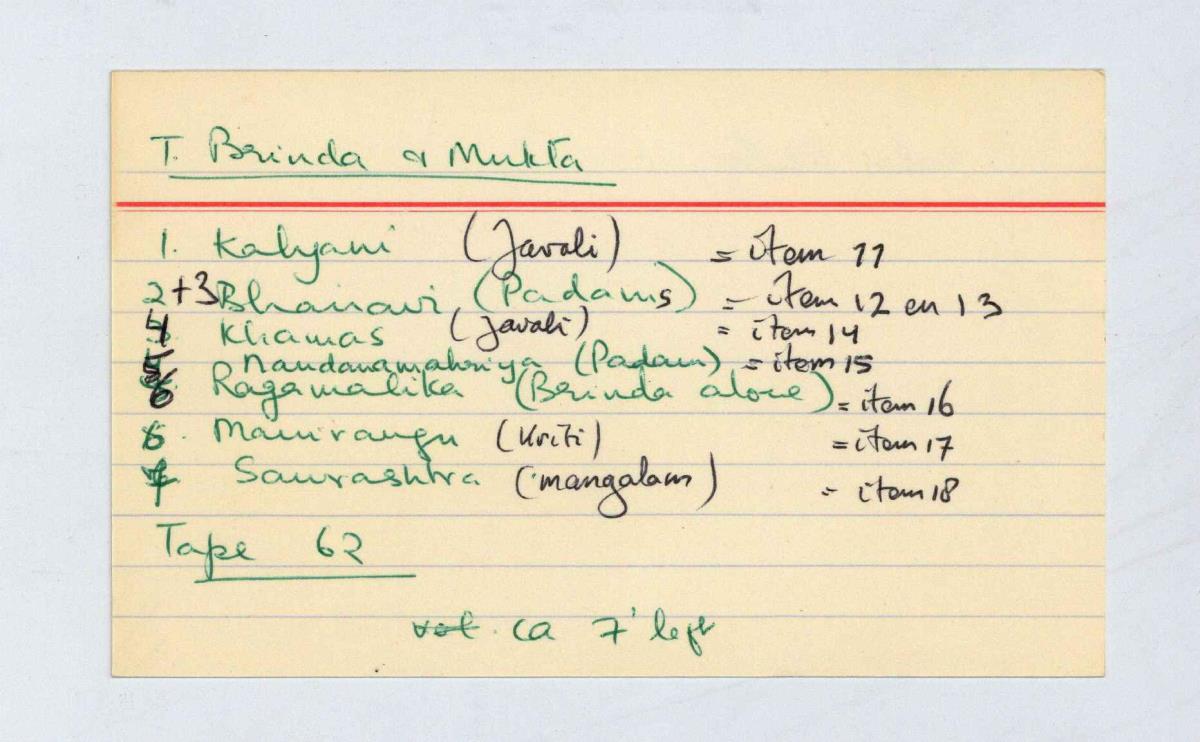 T. Brinda & Mukta
1. Kalyani (Javali) = item 11
2+3 Bhairavi (Padams) = item 12 en 13
4 Khamas (Javali) = item 14
5 Nandanamahriya (Padam) = item 15
6 Ragamalika (Brinda alone) = item 16
6. Manirangu (Kriti) = item 17
7 Saurashtra (mangalam) = item 18
Tape 62
ca 7' left